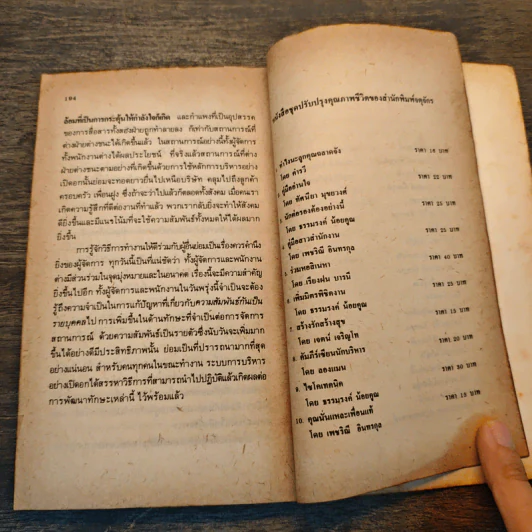 184
ล้อมที่เป็นการกระตุ้นให้กำลังใจก็เกิด และกำแพงที่เป็นอุปสรรค
ของการสื่อสารทั้งสองฝ่ายถูกทำลายลง ก็เท่ากับสถานการณ์ที่
ต่างฝ่ายต่างชนะได้เกิดขึ้นแล้ว ในสถานการณ์อย่างนี้ทั้งผู้จัดการ
ทั้งพนักงานต่างได้ผลประโยชน์ ที่จริงแล้วสถานการณ์ที่ต่าง
ฝ่ายต่างชนะตามอย่างที่เกิดขึ้นด้วยการใช้หลักการบริหารอย่าง
เปิดอกนั้นย่อมจะทอดยาวยื่นไปเหนือบริษัท คลุมไปถึงลูกค้า
ครอบครัว เพื่อนฝูง ซึ่งถ้าจะว่าไปแล้วก็ตลอดทั้งสังคม เมื่อคนเรา
เกิดความรู้สึกที่ดีต่องานที่ทำแล้ว พวกเรากลับยิ่งจะทำให้สังคม
ดียิ่งขึ้นและมีแนวโน้มที่จะใช้ความสัมพันธ์ทั้งหมดให้ได้ผลมาก
ยิ่งขึ้น
การรู้จักวิธีการทำงานให้ดีร่วมกับผู้อื่นย่อมเป็นเรื่องควรคำนึง
ยิ่งของผู้จัดการ ทุกวันนี้เป็นที่แน่ชัดว่า ทั้งผู้จัดการและพนักงาน
ต่างมีส่วนร่วมในจุดมุ่งหมายและในอนาคต เรื่องนี้จะมีความสำคัญ
ยิ่งขึ้นไปอีก ทั้งผู้จัดการและพนักงานในวันพรุ่งนี้จำเป็นจะต้อง
รู้ถึงความจำเป็นในการแก้ปัญหาที่เกี่ยวกับความสัมพันธ์กันเป็น
รายบุคคลไป การเพิ่มขึ้นในด้านทักษะที่จำเป็นต่อการจัดการ
สถานการณ์ ด้วยความสัมพันธ์เป็นรายตัวซึ่งนับวันจะเพิ่มมาก
ขึ้นได้อย่างดีมีประสิทธิภาพนั้น ย่อมเป็นที่ปรารถนามากที่สุด
อย่างแน่นอน สำหรับคนทุกคนในขณะทำงาน ระบบการบริหาร
อย่างเปิดอกได้สรรหาวิธีการที่สามารถนำไปปฏิบัติแล้วเกิดผลต่อ
การพัฒนาทักษะเหล่านี้ ไว้พร้อมแล้ว
หนังสือชุดปรับปรุงคุณภาพชีวิตของสำนักพิมพ์จตุจักร
ทำไงนะลูกคุณฉลาดจัง ราคา 18 บาท
โดย ดำรวี
คู่มืออ่านใจ ราคา 22 บาท
โดย ทัศนียา บุขยวงศ์
นักคือรองต้องอย่างนี้ ราคา 25 บาท
โดย ธรรมรงค์ น้อยคูณ
คู่มือสาวสำนักงาน ราคา 25 บาท
โดย เพชริณี อินทรกุล
ร่วมหอลิเนหา ราคา 40 บาท
โดย เรืองฝน บารนี
6. เพิ่มมิตรพิชิตงาน ราคา 25 บาท
โดย ธรรมรงค์ น้อยคูณ
7. สร้างรักสร้างสุข ราคา 15 บาท
โดย เจตน์ เจริญโท
8. คัมภีร์เซียนนักบริหาร ราคา 20 บาท
โดย ลองแมน
9. ไซโคเทคนิค ราคา 30 บาท
โดย ธรรมรงค์ น้อยคูณ
10. คุณนั่นแหละเพื่อนแท้ ราคา 12 บาท
โดย เพชริณี อินทรกุล